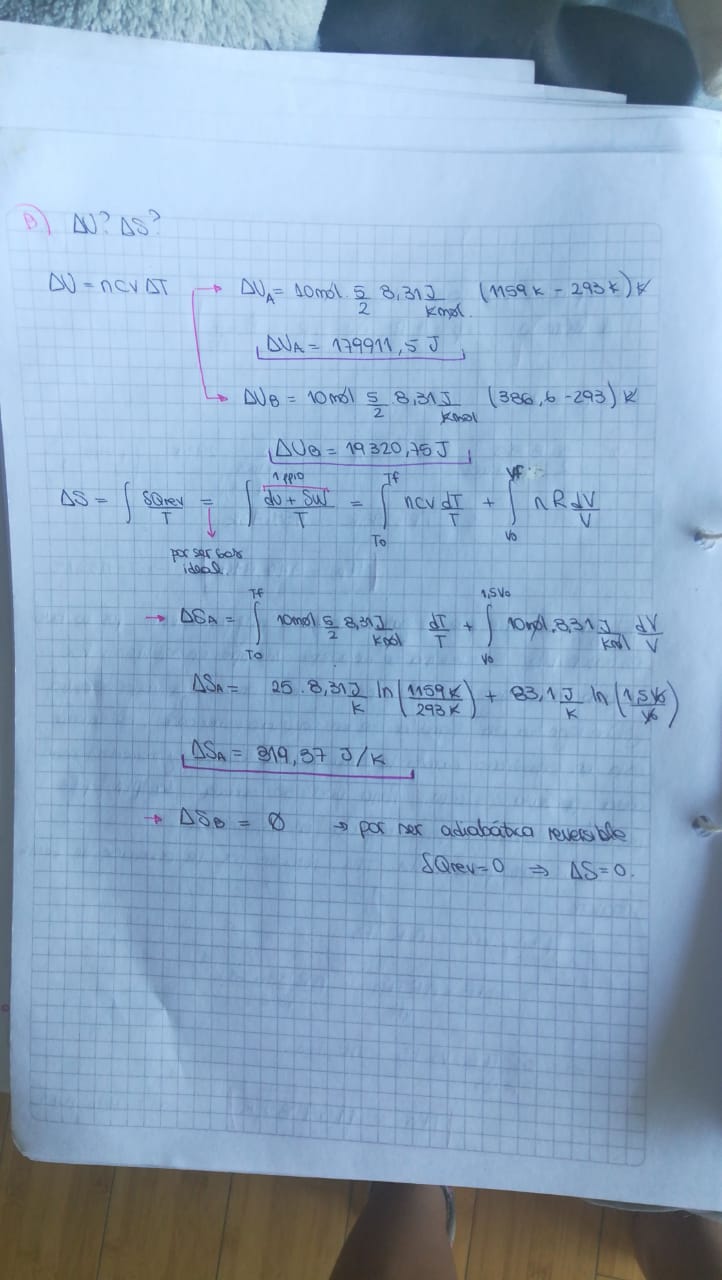 B) ΔU? ΔS?
ΔU = ncv ΔT → ΔUA = 10mol 5/2 8,31 J/Kmol. (1159K - 293K) K
ΔUA = 179911,5 J
→ ΔUB = 10mol 5/2 8,31 J/Kmol (386,6 - 293) K
ΔUB = 19320,75 J
1 ppio
ΔS = ∫ δQrev/T = ∫ dU + δW/T = ∫ To Tf ncv dT/T + ∫ Vo Vf nR dV/V
por ser gas
ideal.
→ ΔSA = ∫ To Tf 10mol 5/2 8,31 J/Kmol dT/T + ∫ Vo 1,5Vo 10mol. 8,31 J/Kmol dV/V
ΔSA = 25 . 8,31 J/K ln(1159K/293K) + 83,1 J/K ln(1,5Vo/Vo)
ΔSA = 319,37 J/K
→ ΔSB = Ø → por ser adiabática reversible
δQrev=0 ⇒ ΔS=0.